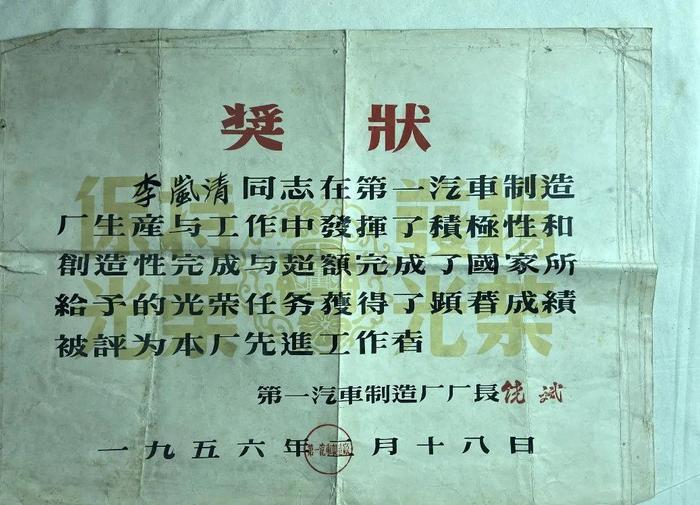 獎狀
李嵐清同志在第一汽車制造
厂生産与工作中發揮了積極性和
創造性完成与超額完成了國家所
給予的光荣任务獲得了顕著成績
被評为本厂先進工作者
第一汽車制造厂厂長饶斌
一九五六年 月十八日
保持 發揚
光荣 光荣